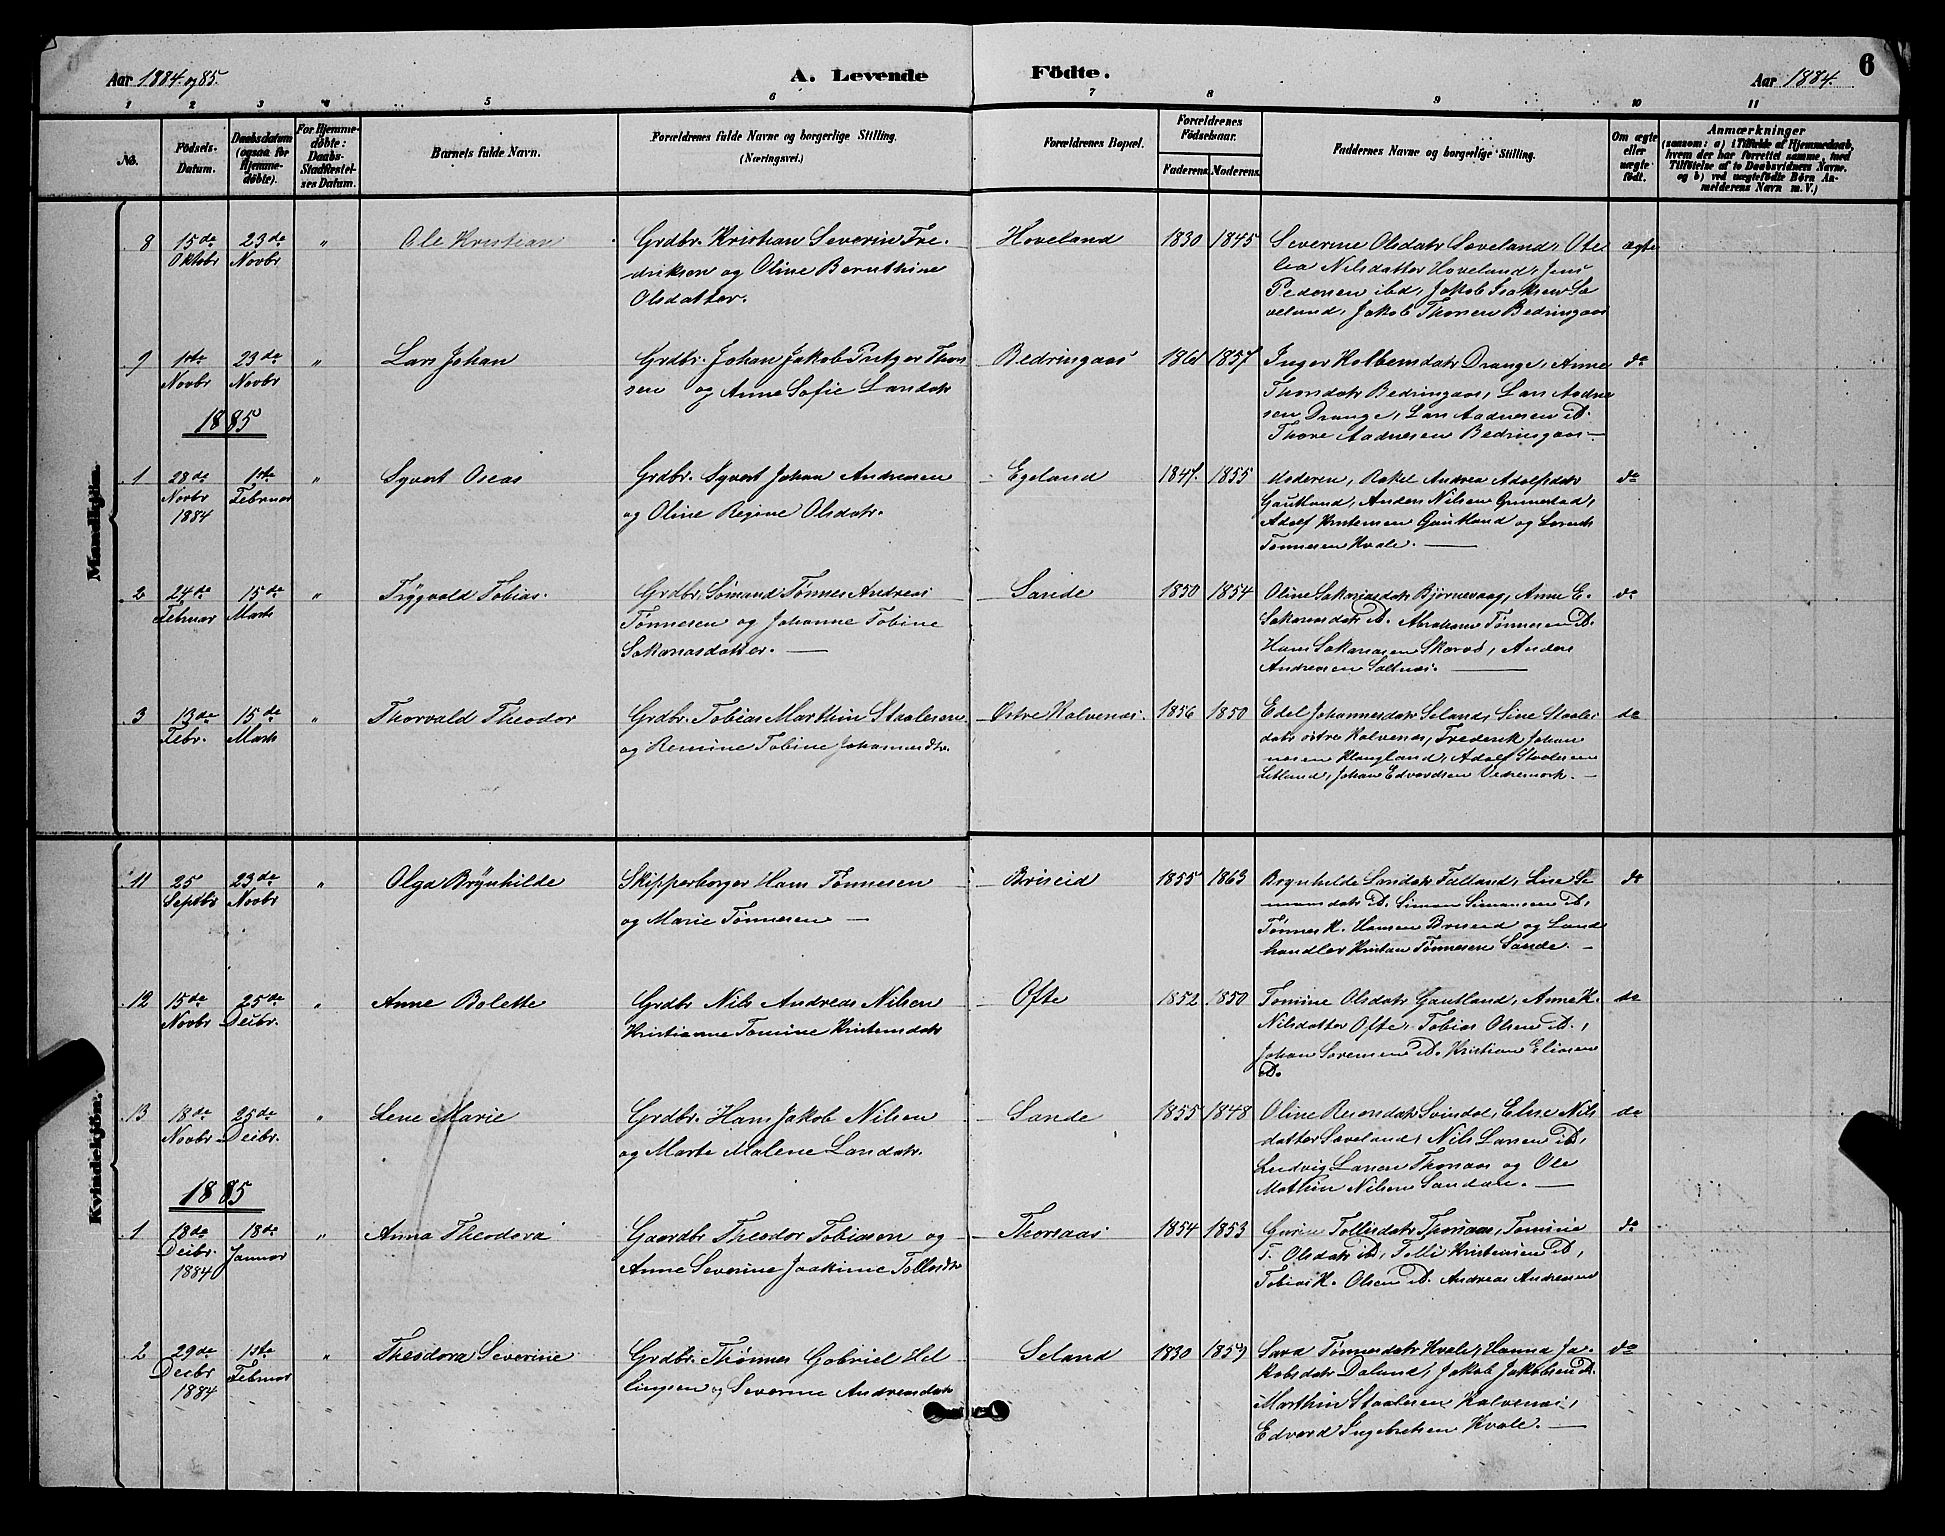 Aar 1884 og 85.
A. Levende Födte.
Aar 1884.
6
1 2 3 4 5 6 7 8 9 10 11
No.
Födsels-Datum.
Daabsdatum (ogsaa for Hjemmedöbte).
For Hjemmedöbte: Daabs-Stadfæstelses Datum.
Barnets fulde Navn.
Forældrenes fulde Navne og borgerlige Stilling.
(Næringsvei.)
Forældrenes Bopæl.
Forældrenes Födselsaar.
Faderens. Moderens.
Faddernes Navne og borgerlige Stilling.
Om ægte eller uægte födt.
Anmærkninger
(saasom: a) i Tilfælde af Hjemmedaab, hvem der har forrettet samme, med Tilföielse af to Daabsvidners Navne, og b) ved uægtefödte Börn Anmelderens Navn m. V.)
Mandkjön.
8 15de Oktobr 23de Novbr " Ole Kristian
Grdbr. Kristian Severin Fre-
driksen og Oline Bernthine
Olsdatter.
Hoveland 1830 1845
Severine Olsdatr Søveland, Ote
lea Nilsdatter Hoveland, Jens
Pedersen ibd, Jakob Isaksen Sø
veland, Jakob Thorsen Bedringaas
ægte
9 1ste Novbr 23de Novbr " Lars Johan
Grdbr. Johan Jakob Pritzer Thor
sen og Anne Sofie Larsdatr
Bedringaas 1861 1857
Inger Kolbensdatr Drange, Anne
Thorsdatr Bedringaas, Lars Aadne
sen Drange, Lars Aadnesen iD.
Thore Aadnesen Bedringaas
do
1885
1 28de Novbr 1884 1ste Februar " Syvert Oseas
Grdbr. Syvert Johan Andreasen
og Oline Regine Olsdatr.
Egeland 1847. 1855
Moderen, Rakel Andrea Adolfsdatr
Gautland, Anders Nilsen Grimestad,
Adolf Kristensen Gautland og Lorents
Tønnesen Kvale.
do
2 24de Februar 15de Marts " Trygvald Tobias.
Grdbr. Sømand Tønnes Andreas
Tønnesen og Johanne Tobine
Sakariasdatter.
Sande 1850 1854
Oline Sakariasdatr Bjørnevaag, Anne E.
Sakariasdatr iD. Abraham Tønnesen iD.
Hans Sakariasen Skarvø, Anders
Andreasen Saltnæs.
do
3 13de Febr. 15de Marts " Thorvald Theodor
Grdbr. Tobias Marthin Staalesen
og Remine Tobine Johannesdtr.
Østre Kalvenæs. 1856 1850
Edel Johannesdatr Seland, Sine Staales
datr østre Kalvenæs, Frederik Johan
nesen Haugland, Adolf Staalesen
Litland, Johan Edvardsen Vedremork.
do
Kvindekjön.
11 25 Septbr 23de Novbr " Olga Brynhilde
Skipperborger Hans Tønnesen
og Marie Tønnesen
Briseid 1855 1863
Brynhilde Larsdatr Fælland, Lise Si
monsdatr iD. Simon Simonsen iD,
Tønnes K. Hansen Briseid og Land
handler Kristian Tønnesen Sande.
do
12 15de Novbr 25de Decbr. " Anne Bolette
Grdbr Nils Andreas Nilsen
Kristianne Tomine Kristensdatr
Ofte 1852 1850
Tomine Olsdatr Gautland, Anne K.
Nilsdatter Ofte, Tobias Olsen iD,
Johan Sørensen iD. Kristian Eliasen
iD.
do
13 18de Novbr 25de Decbr. " Lene Marie
Grdbr. Hans Jakob Nilsen
og Marte Malene Larsdatr.
Sande 1855 1848
Oline Reiersdatr Svindal, Elise Nils
datter Søveland, Nils Larsen iD,
Ludvig Larsen Thorsaas og Ole
Mathin Nilsen Sandøen.
do
1885
1 18de Decbr. 1884 18de Januar " Anna Theodora
Gaardbr Theodor Tobiasen og
Anne Severine Joakime Tollisdtr
Thorsaas 1854 1853
Gurine Tollisdatr Thorsaas, Tomine
T. Olsdatr iD, Tolli Kristensen iD,
Tobias K. Olsen iD. Andreas Andreasen
do
2 29de Decbr 1884 1ste Februar " Theodora Severine
Grdbr. Thønnes Gabriel Hel
liesen og Severine Andreasdatr
Seland 1830 1859
Sara Tønnesdatr Kvale, Hanna Ja-
kobsdatr Daland, Jakob Jakobsen iD.
Marthin Staalesen Kalvenæs,
Edvard Ingebretsen Kvale.
do